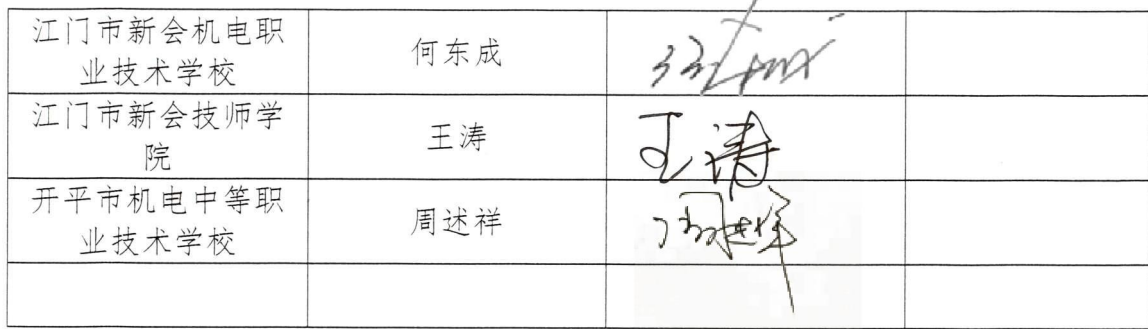 江门市新会机电职
业技术学校
何东成
江门市新会技师学
院
王涛
王涛
开平市机电中等职
业技术学校
周述祥
周述祥